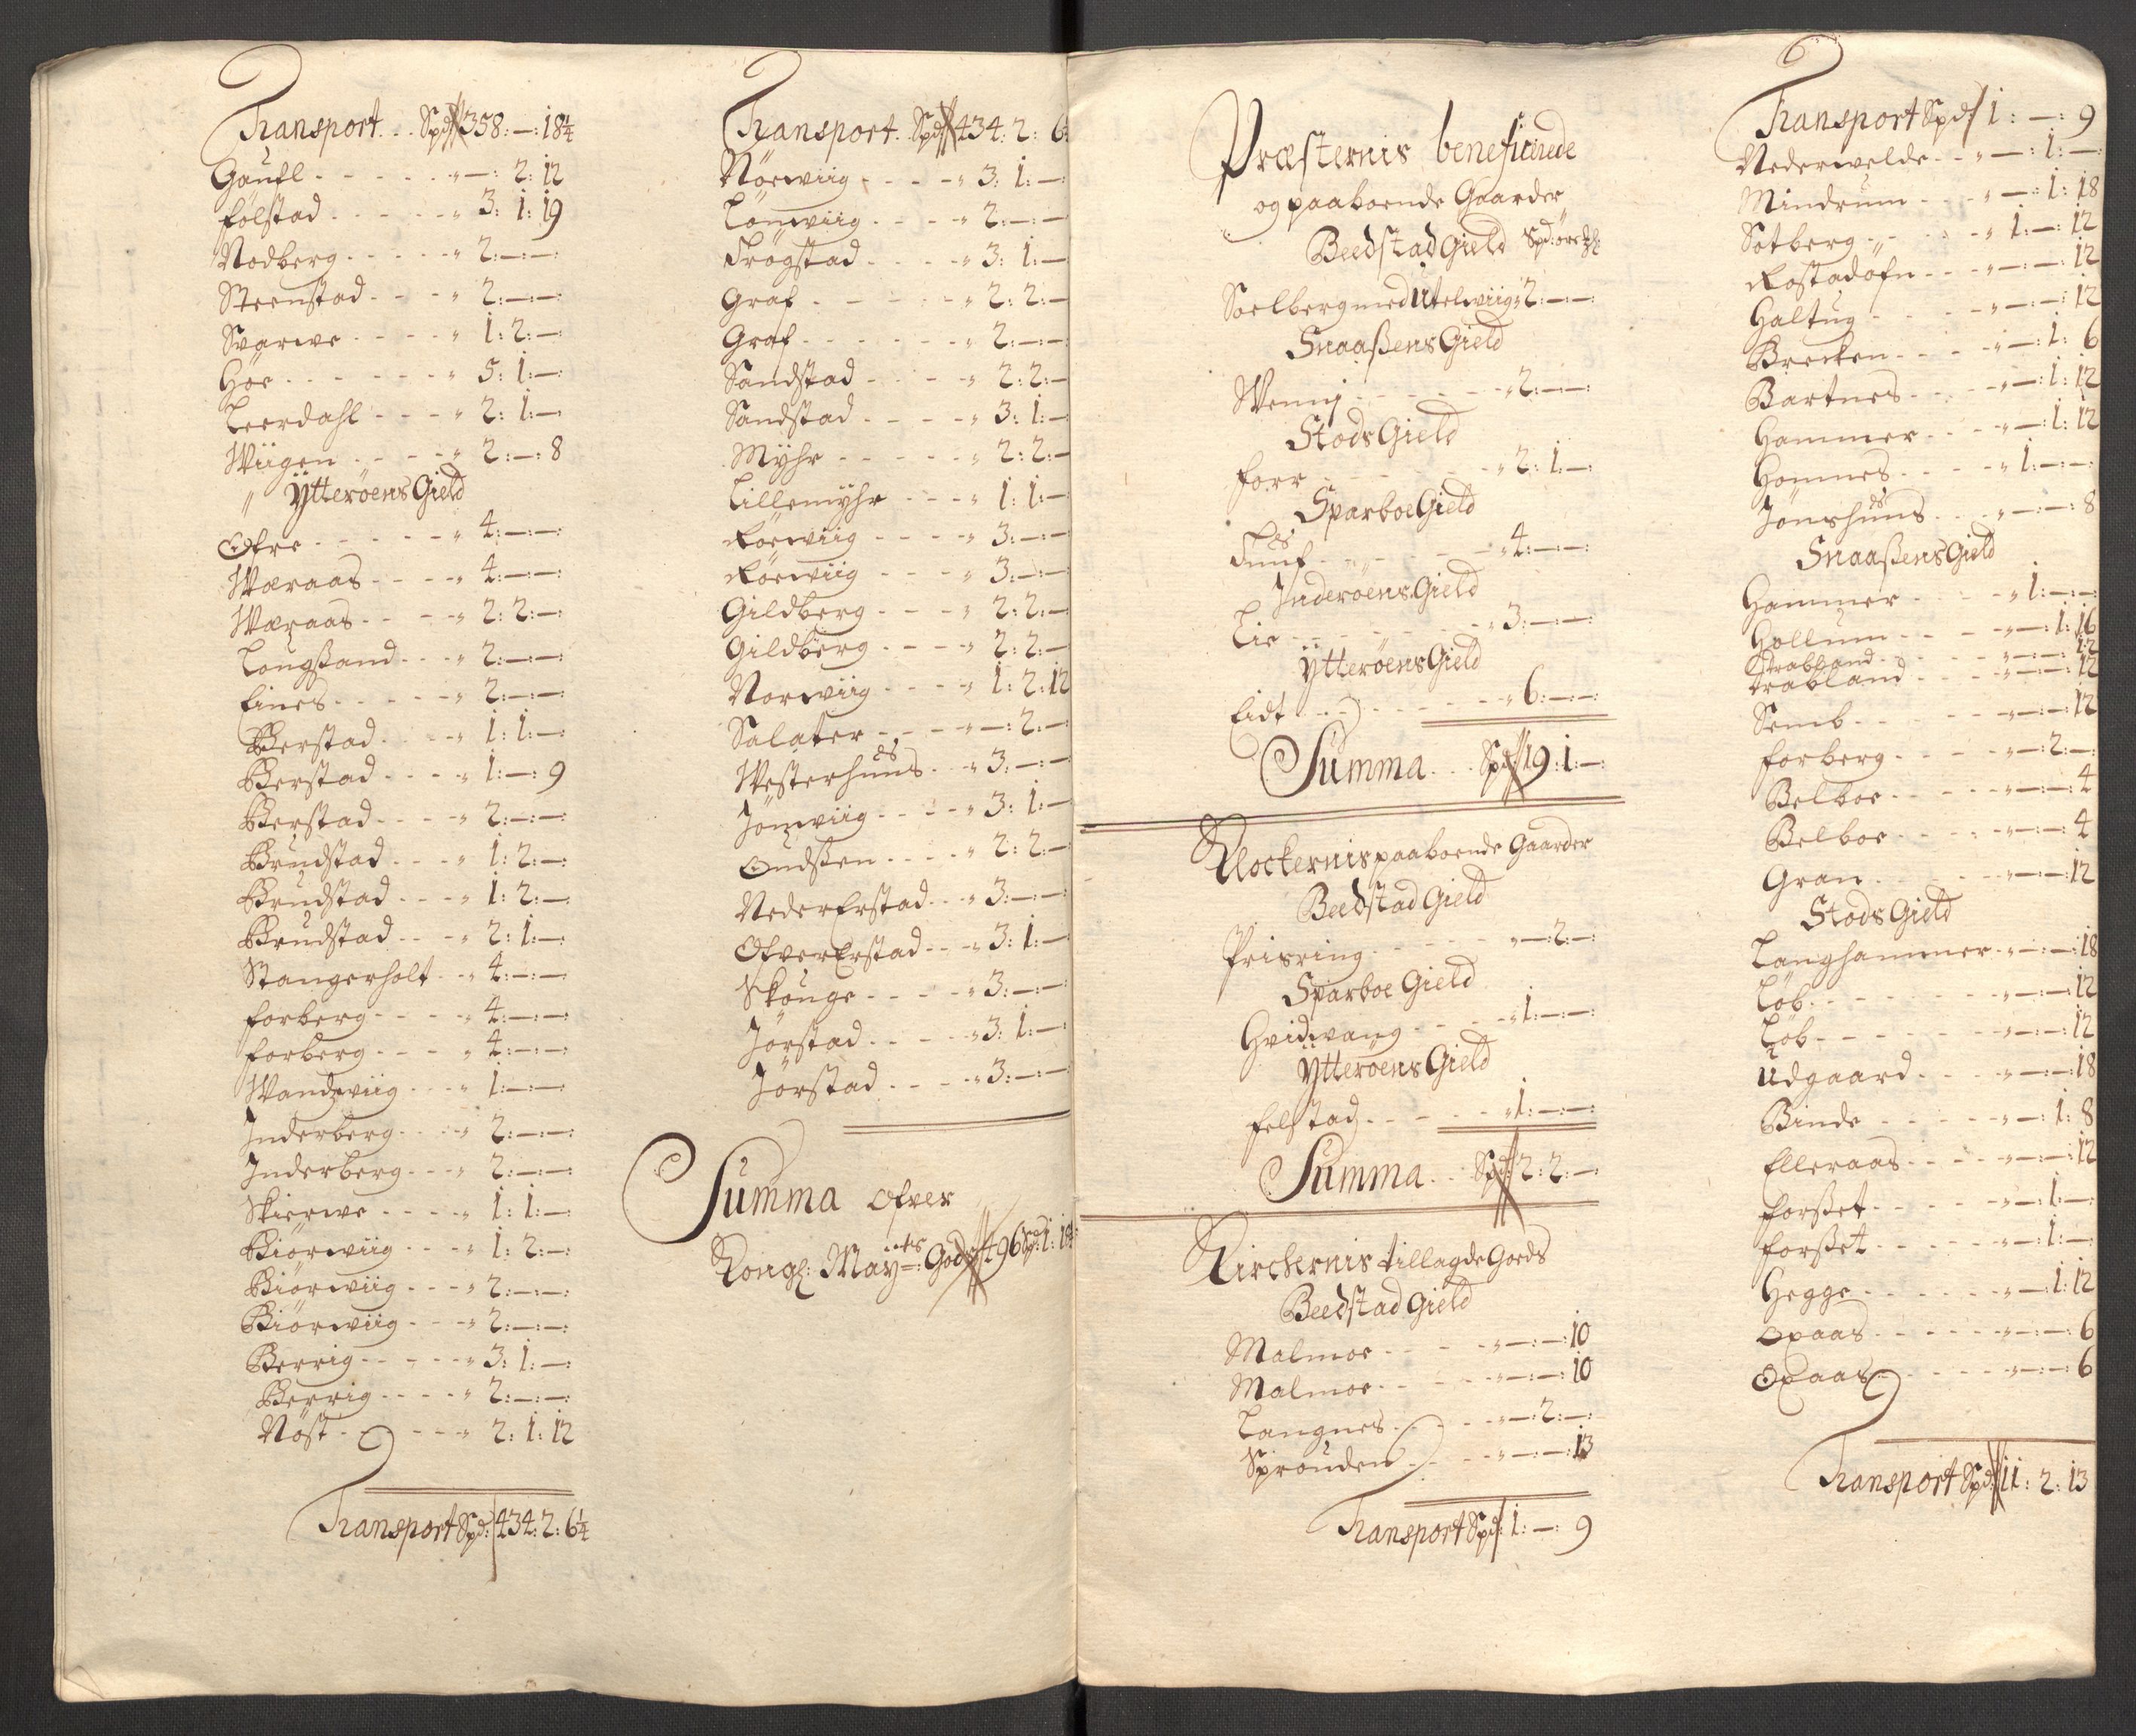 Transport. . . Spd 358:—:18¼
Gaufl - - - - - „ —: 2: 12
Følstad - - - - „ 3: 1: 19
Nodberg - - - - „ 2:—:—
Steenstad - - - „ 2:—:—
Svarwe - - - - „ 1: 2:—
Höe - - - - - - „ 5: 1:—
Leerdahl - - - „ 2: 1:—
Wiigen - - - - „ 2:—: 8
Ytterøens Gield
Ofre - - - - - „ 4:—:—
Wæraas - - - - „ 4:—:—
Wæraas - - - - „ 2: 2:—
Langsand - - - „ 2:—:—
Eines - - - - - „ 2:—:—
Berstad - - - - „ 1: 1:—
Berstad - - - - „ 1:—: 9
Berstad - - - - „ 2:—:—
Brudstad - - - „ 1: 2:—
Brudstad - - - „ 1: 2:—
Brudstad - - - „ 2: 1:—
Stangerholt - - „ 4:—:—
Forberg - - - - „ 4:—:—
Forberg - - - - „ 4:—:—
Wandwiig - - - „ 1:—:—
Inderberg - - - „ 2:—:—
Inderberg - - - „ 2:—:—
Skierwe - - - - „ 1: 1:—
Biørwiig - - - „ 1: 2:—
Biørwiig - - - „ 2:—:—
Biørwiig - - - „ 2:—:—
Berrig - - - - „ 3: 1:—
Berrig - - - - „ 2:—:—
Nøst - - - - - „ 2: 1: 12
Transport Spd: 434: 2: 6¼
Transport. . Spd 434: 2: 6
Nörwiig - - - - „ 3: 1:—
Lönwiig - - - - „ 2:—:—
Frøgstad - - - „ 3: 1:—
Graf - - - - - „ 2: 2:—
Graf - - - - - „ 2:—:—
Sandstad - - - „ 2: 2:—
Sandstad - - - „ 3: 1:—
Myhr - - - - - „ 2: 2:—
Lillemyhr - - - „ 1: 1:—
Rörwiig - - - - „ 3:—:—
Rörwiig - - - - „ 3:—:—
Gildberg - - - „ 2: 2:—
Gildberg - - - „ 2: 2:—
Norwiig - - - - „ 1: 2: 12
Salater - - - - „ —: 2:—
Westerhuus - - „ 3:—:—
Jönwiig - - - - „ 3: 1:—
Oudsten - - - - „ 2: 2:—
Neder Erstad - - „ 3:—:—
Ofver Erstad - - „ 3: 1:—
Skounge - - - - „ 3:—:—
Jørstad - - - - „ 3: 1:—
Jørstad - - - - „ 3:—:—
Summa Ofver
Kongl: Mayts: Gods 496 Spd: 1: 18
Præsternis beneficirede
og paaboende Gaarder
Beedstad Gield Spd: öre
Soelberg med Utelwiig „ 2:—:—
Snaaßens Gield
Wemij - - - - - „ 2:—:—
Stods Gield
Forr - - - - - „ 2: 1:—
Sparboe Gield
- - - - - „ 4:—:—
Inderoens Gield
Lie - - - - - - „ 3:—:—
Ytterøens Gield
Eidt - - - - - „ 6:—:—
Summa. . . Spd: 19: 1:—
Klockernis paaboende Gaarder
Beedstad Gield
Prisring - - - - „ —: 2:—
Sparboe Gield
Hvidwang - - - - „ 1:—:—
Ytterøens Gield
Felstad - - - - „ 1:—:—
Summa. . Spd: 2: 2:—
Kirckernis tillagde Gods
Beedstad Gield
Malmoe - - - - „ —:—: 10
Malmoe - - - - „ —:—: 10
Langnes - - - - „ —: 2:—
Sprouden - - - „ —:—: 13
Transport Spd: 1:—: 9
Transport Spd: 1:—: 9
Nederwelde - - „ —: 1:—
Mindrum - - - „ —: 1: 18
Sotberg - - - - „ 1:—: 12
Rostadøfn - - - „ —:—: 12
Haltug - - - - „ —:—: 12
Brecken - - - - „ —: 1: 6
Bartnes - - - - „ —: 1: 12
Hammer - - - - „ —: 1: 12
Homnes - - - - „ 1:—:—
Jønshuus - - - „ —:—: 8
Snaaßens Gield
Hammer - - - - „ 1:—:—
Hollum - - - - „ —: 1: 16
Trabland - - - „ —:—: 12
Trabland - - - „ —:—: 12
Semb - - - - - „ —:—: 12
Forberg - - - - „ —: 2:—
Belboe - - - - „ —:—: 4
Belboe - - - - „ —:—: 4
Gran - - - - - „ —:—: 12
Stods Gield
Langhammer - - „ —:—: 18
Løb - - - - - - „ —:—: 12
Løb - - - - - - „ —:—: 12
Udgaard - - - - „ —:—: 18
Binde - - - - - „ —: 1: 8
Elleraas - - - „ —:—: 12
Forßet - - - - „ —: 1:—
Forßet - - - - „ —: 1:—
Hegge - - - - - „ —: 1: 12
Opaas - - - - - „ —:—: 6
Opaas - - - - - „ —:—: 6
Transport Spd: 11: 2: 13